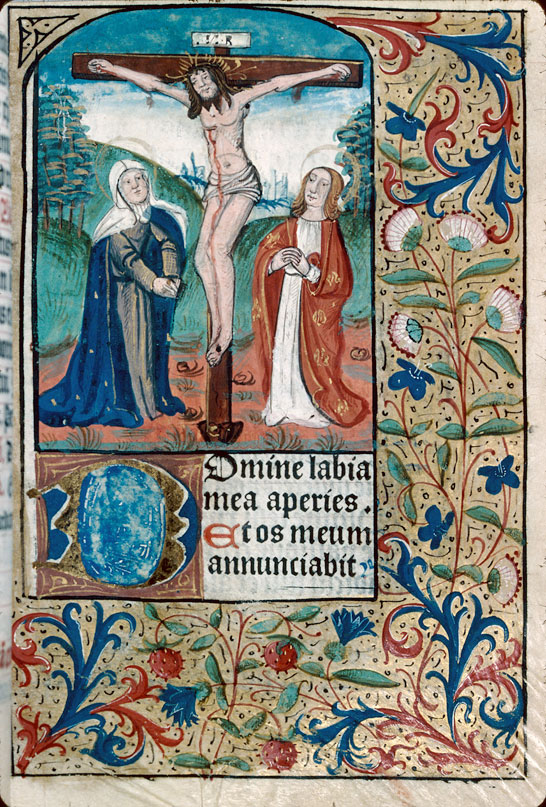 INR
Domine labia
mea aperies.
Et os meum
annunciabit